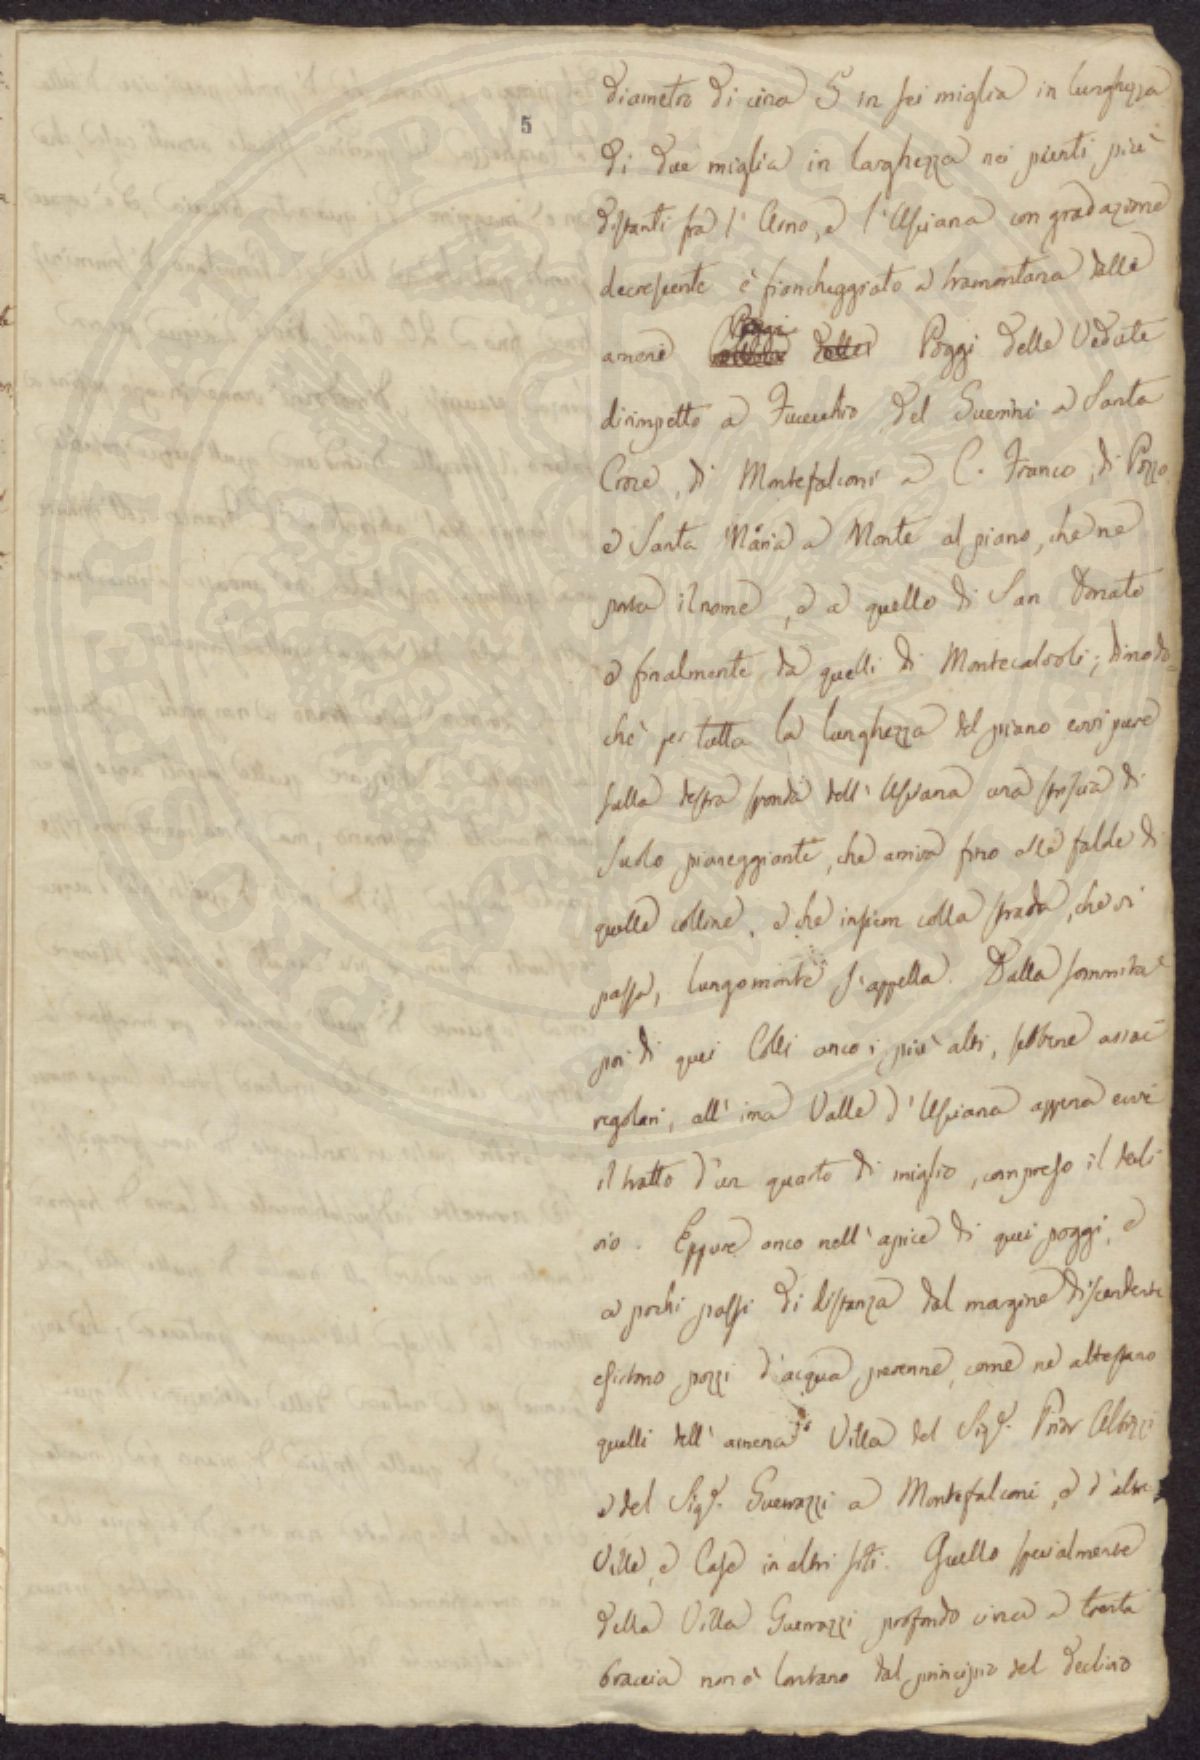 5
diametro di circa 5 in sei miglia in lunghezza
di due miglia in larghezza nei punti più
distanti fra l'Arno, e l'Usciana con gradazione
decrescente è fiancheggiato a tramontana dalle
amene Poggi delle Poggi delle Vedute
dirimpetto a Fucecchio, del Guerrini a Santa
Croce, di Montefalconi a C. Franco, di Pozzo
e Santa Maria a Monte al piano, che ne
porta il nome, e a quello di San Donato
e finalmente da quelli di Montecalvoli; dimodo=
chè per tutta la lunghezza del piano evvi pure
sulla destra sponda dell'Usciana una striscia di
suolo pianeggiante, che arriva fino alle falde di
quelle colline, e che insiem colla strada, che vi
passa, lungomonte s'appella. Dalla sommità
poi di quei Colli anco i più alti, sebbene assai
regolari, all'ima Valle d'Usciana appena evvi
il tratto d'un quarto di miglio, compreso il decli
vio. Eppure anco nell'apice di quei poggi, e
a pochi passi di distanza dal margine discendente
esistono pozzi d'acqua perenne, come ne attestano
quelli dell'amena Villa del Sigr. Prior Albizzi
e del Sigr. Guerrazzi a Montefalconi, e d'altre
Ville, e Case in altri siti. Quello specialmente
della Villa Guerrazzi profondo circa a trenta
braccia non è lontano dal principio del declivio